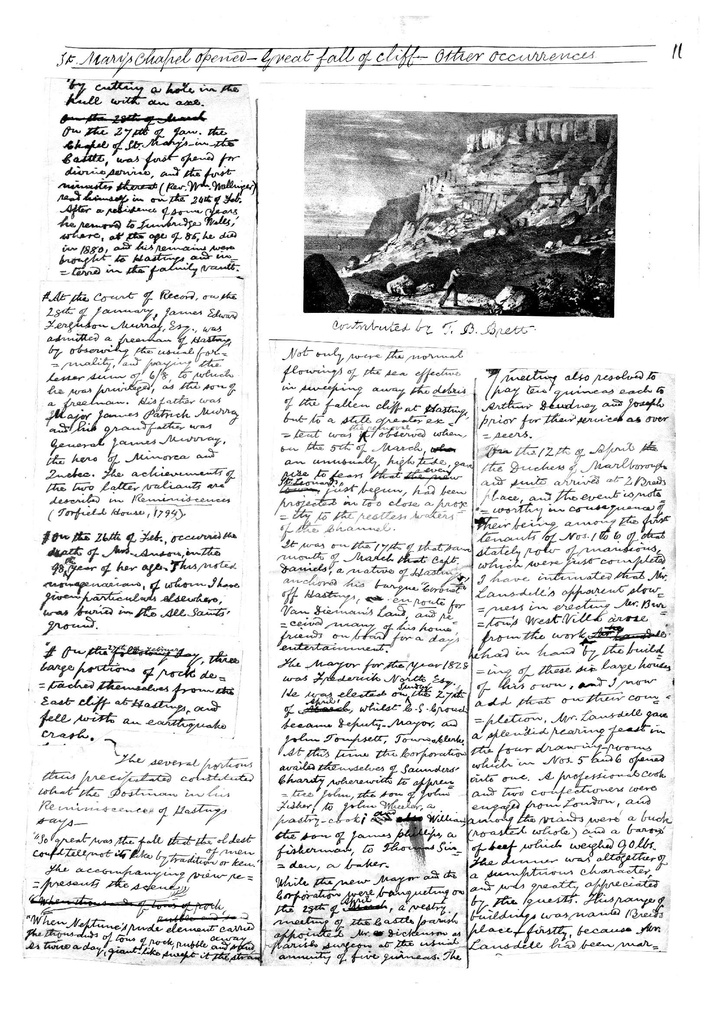 St. Mary's Chapel opened – Great fall of cliff – Other occurrences
11
by cutting a hole in the
hull with an axe.
On the 28th of March
On the 27th of Jan. the
Chapel of St. Mary's-in the
Castle, was first opened for
divine service, and the first
minister thereat (Rev. Wm. Wallinger)
read himself in on the 24th of Feb.
After a residence of some years
he removed to Tunbridge Wells,
where, at the age of 85, he died
in 1880, and his remains were
brought to Hastings and in-
=terred in the family vault.
At the Court of Record, on the
28th of January, James Edward
Ferguson Murray, Esq., was
admitted a freeman of Hastings
by observing the usual for-
=mality, and paying the
lesser sum of 6/8 to which
he was privileged, as the son of
a freeman. His father was
Major James Patrick Murray
and his grandfather was
General James Murray,
the hero of Minorca and
Quebec. The achievements of
the two latter valiants are
described in Reminiscences
(Torfield House, 1794).
On the 26th of Feb. occurred the
death of Mrs. Anson, in the
98th year of her age. This noted
nonagenarian, of whom I have
given particulars elsewhere,
was buried in the All Saints'
ground.
On the following day, three
large portions of rock de-
=tached themselves from the
East cliff at Hastings, and
fell with an earthquake
crash.
The several portions
thus precipitated constituted
what the Postman in his
Reminiscences of Hastings
says–
"So great was the fall that the oldest
of men
could tell not its like by tradition or ken"
The accompanying view re-
=presents the scene
When thousands of tons of rock
"When Neptune's rude element carried
away
The thousands of tons of rock, rubble and
As twice a day, giant-like swept it the strand
contributed by T. B. Brett
Not only were the normal
flowings of the sea effective
in sweeping away the debris
of the fallen cliff at Hastings,
but to a still greater ex-
=tent was the removal observed when,
on the 5th of March,
an unusually high tide, gave
rise to fears that even
St Leonards, just begun, had been
projected in too close a prox-
=ity to the restless waters
of the Channel.
It was on the 17th of that same
month of March that Capt.
Daniels, a native of Hastings,
anchored his barque Coronet
off Hastings, en route for
Van Dieman's Land, and re-
=ceived many of his home
friends on board for a day's
entertainment.
The Mayor for the year 1828
was Frederick North Esq.
He was elected on Sunday the 27th
of April, whilst C. S. Crouch
became Deputy-Mayor, and
John Tompsett, Townsclerk.
At this time the Corporation
availed themselves of Saunders'
Charity wherewith to appren-
=tice John, the son of John
Fisher, to John Wheeler, a
pastry-cook; William
the son of James Phillips, a
fisherman, to Thomas Sin-
=den, a baker.
While the new Mayor and the
Corporation were banqueting on
the 29th of April, a vestry
meeting of the Castle parish
appointed Mr. Dickenson as
parish surgeon at the usual
annuity of five guineas. The
meeting also resolved to
pay ten guineas each to
Arthur Dewdney and Joseph
Prior for their services as over
=seers.
On the 12th of April the
the Duchess of Marlborough
and suite arrives at 2 Breds
place, and the event is note
=worthy in consequence of
their being among the first
tenants of Nos. 1 to 6 of that
stately row of mansions,
which were just completed
I have intimated that Mr.
Lansdell's apparent slow-
=ness in erecting Mr. Bur-
=ton's West Villa arose
from the work
he had in hand by the build
=ing of these six large houses
of his own, and I now
add that on their com-
=pletion, Mr. Lansdell gave
a splendid rearing feast in
the four drawing-rooms
which in Nos. 5 and 6 opened
into one. A professional cook
and two confectioners were
engaged from London, and
among the viands were a buck
(roasted whole) and a baron
of beef which weighed 90 lbs.
The dinner was altogether of
a sumptuous character,
and was greatly appreciated
by the guests. This range of
buildings was named Breeds
place – firstly, because Mr.
Lansdell had been mar-